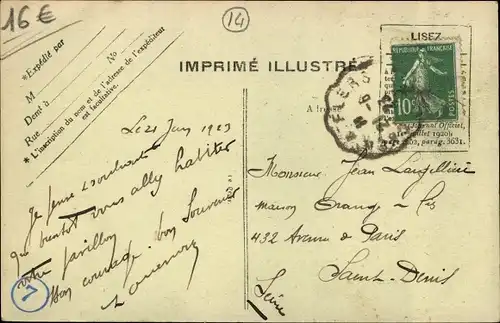 16€
14
*Expédié par
M
No
Demt à
Rue
*L'inscription du nom et de l'adresse de l'expéditeur
est facultative.
IMPRIMÉ ILLUSTRÉ
LISEZ
REPUBLIQUE FRANÇAISE
10c
POSTES
Journal Officiel,
juillet 1920
parag. 3631.
Le 21 Juin 1923
Je pense
que bientôt vous allez habiter
votre pavillon
Bon courage bon Souvenir
7
Monsieur Jean
Maison
432 Avenue de Paris
Saint-Denis
Seine